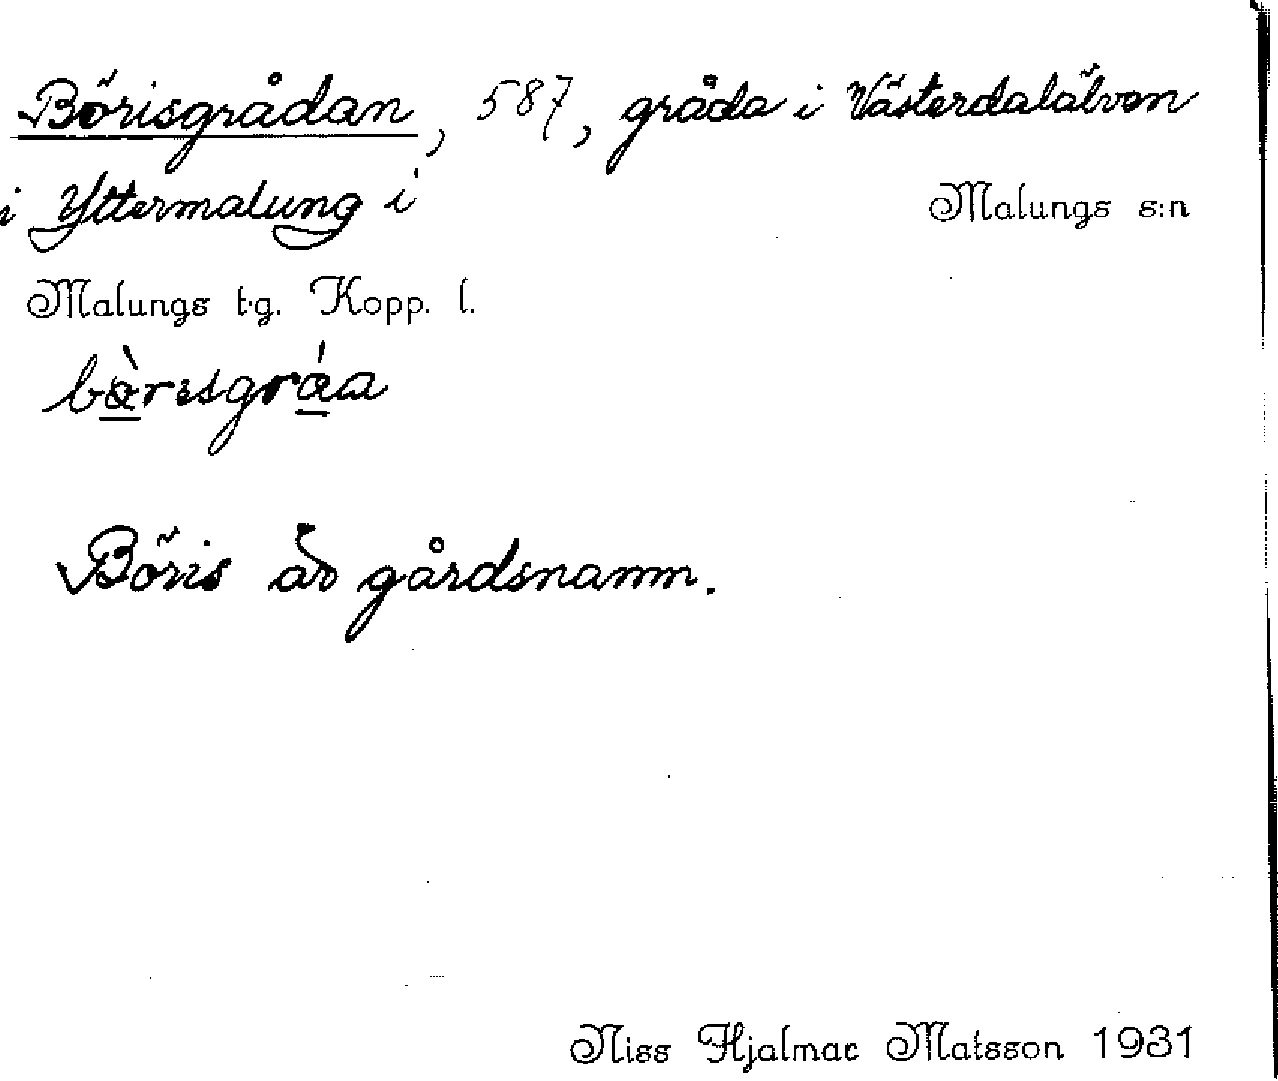 Börisgrådan, 587, gråda i Västerdalälven
i Yttermalung i Malungs s:n
Malungs t.g. Kopp. l.
Böris är gårdsnamn.
Niss Hjalmar Matsson 1931